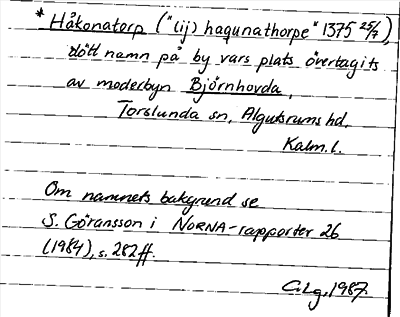 * Håkonatorp ("(i j) haqunathorpe" 1375 25/7),
dött namn på by vars plats övertagits
av moderbyn Björnhovda,
Torslunda sn, Algutsrums hd,
Kalm. l.
Om namnets bakgrund se
S. Göransson i NORNA-rapporter 26
(1984), s. 282 ff.
C.Lg, 1987.